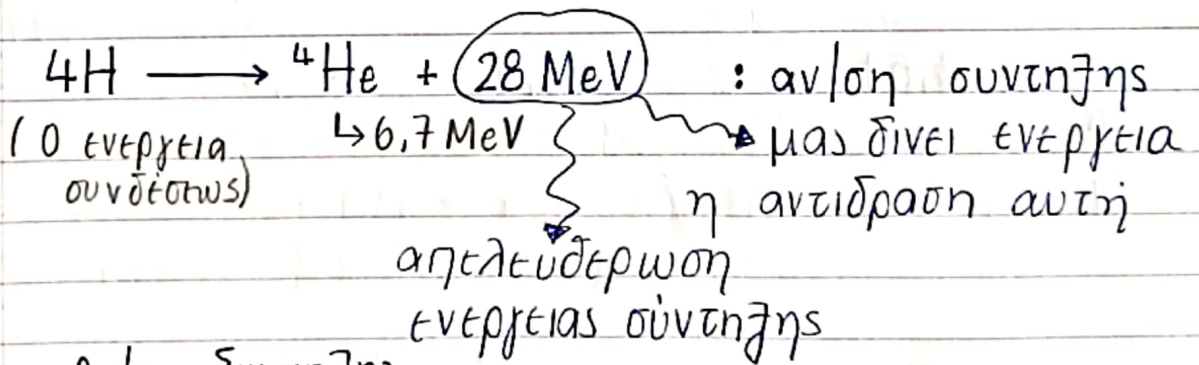 4H ⟶ ⁴He + 28 MeV : αν/ση συντηξης
(0 ενεργεια ↳6,7 MeV μας δινει ενεργεια
συνδέσεως) η αντιδραση αυτή
απελευθερωση
ενεργειας σύντηξης